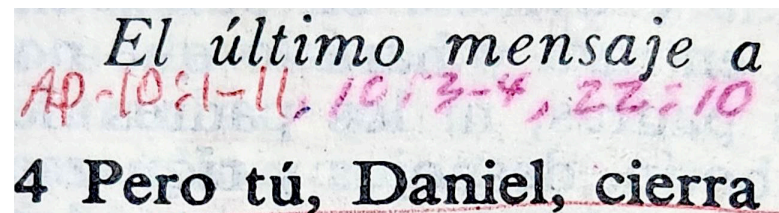 El último mensaje a
AP-10:1-11, 10:3-4, 22:10
4 Pero tú, Daniel, cierra